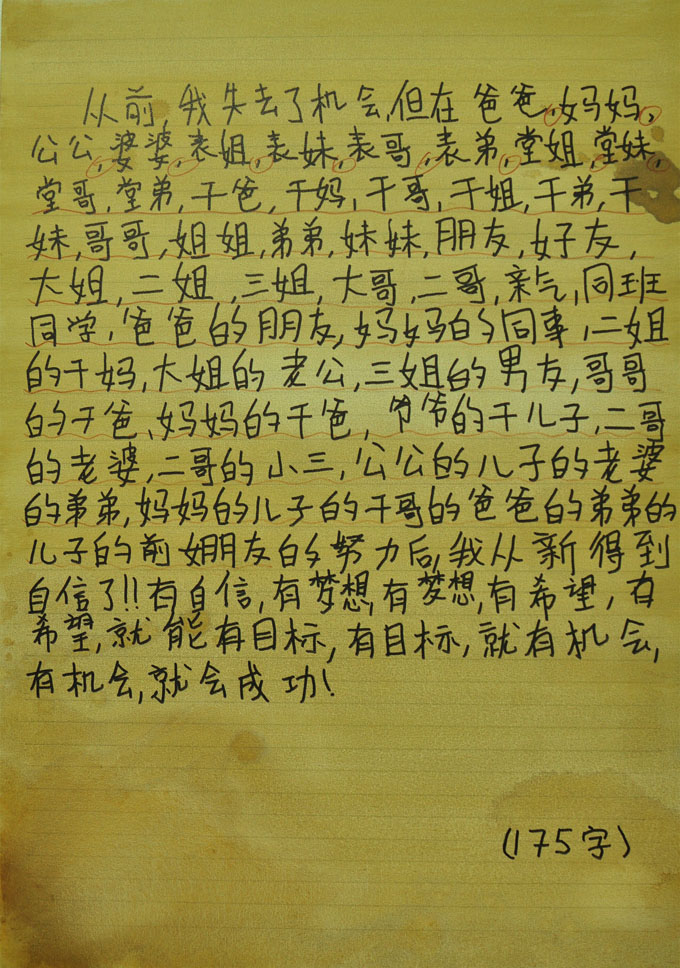 从前,我失去了机会,但在爸爸,妈妈,
公公,婆婆,表姐,表妹,表哥,表弟,堂姐,堂妹,
堂哥,堂弟,干爸,干妈,干哥,干姐,干弟,干
妹,哥哥,姐姐,弟弟,妹妹,朋友,好友,
大姐,二姐,三姐,大哥,二哥,亲气,同班
同学,爸爸的朋友,妈妈的同事,二姐
的干妈,大姐的老公,三姐的男友,哥哥
的干爸,妈妈的干爸,爷爷的干儿子,二哥
的老婆,二哥的小三,公公的儿子的老婆
的弟弟,妈妈的儿子的干哥的爸爸的弟弟的
儿子的前女朋友的努力后,我从新得到
自信了!!有自信,有梦想,有梦想,有希望,有
希望,就能有目标,有目标,就有机会,
有机会,就会成功!
(175字)